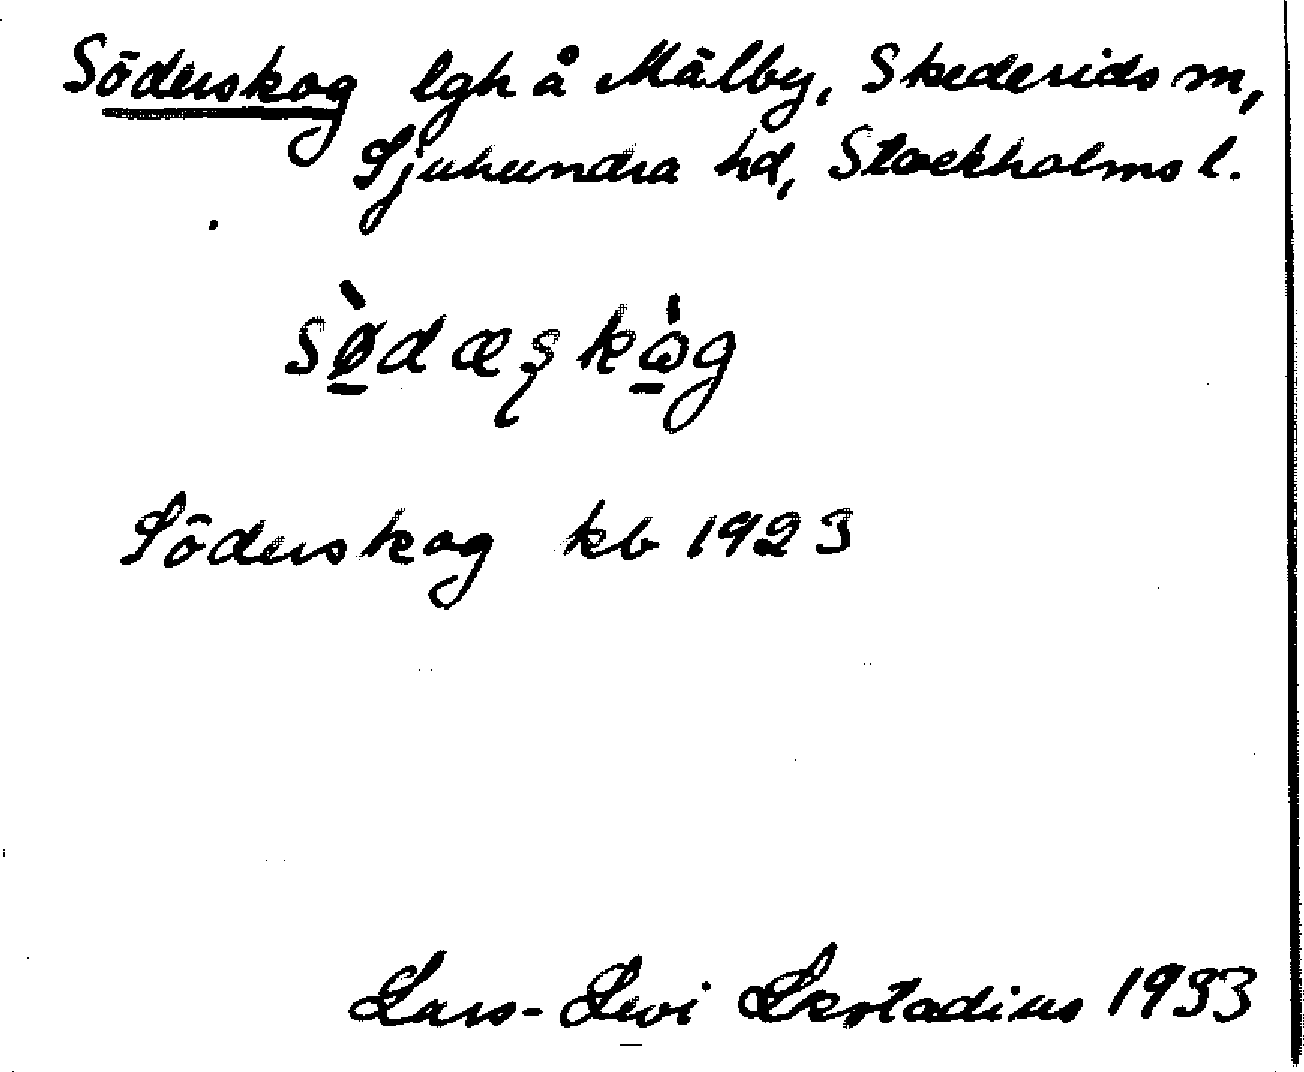 Söderskog lgh å Mälby, Skederids sn,
Sjuhundra hd, Stockholms l.
sø̀dæʂkɷ̀g
Söderskog kb 1923
Lars-Levi Læstadius 1933